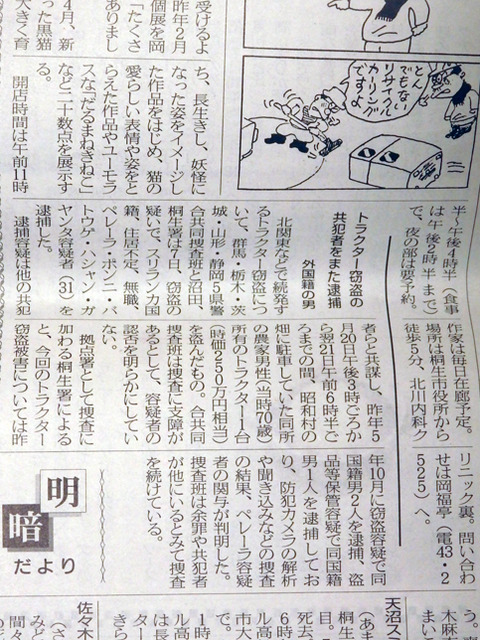 とんでもない
リサイクル
カーリング
ですよ
受けるよ
昨年2月
個展を岡
「たくさ
ありまし
4月、新
った黒猫
大きく育
ち、長生きし、妖怪に
なった姿をイメージし
た作品をはじめ、猫の
愛らしい表情や姿をと
らえた作品やユーモラ
スな「だるまねきねこ」
など二十数点を展示す
る。
開店時間は午前11時
半〜午後4時半(食事
は午後2時半まで)
で、夜の部は要予約。
作家は毎日在廊予定。
場所は桐生市役所から
徒歩5分 北川内科ク
リニック裏。問い合わ
せは岡福亭(電43・2
525)へ。
トラクター窃盗の
共犯者をまた逮捕
外国籍の男
北関東などで続発す
るトラクター窃盗につ
いて、群馬・栃木・茨
城・山形・静岡5県警
合共同捜査班と沼田、
桐生署は7日、窃盗の
疑いで、スリランカ国
籍、住居不定、無職、
ペレーラ・ボンニ・バ
トウゲ・ハシャン・ガ
ヤンタ容疑者(31)を
逮捕した。
逮捕容疑は他の共犯
者らと共謀し、昨年5
月20日午後3時ごろか
ら翌21日午前6時半ご
ろまでの間、昭和村の
畑に駐車していた同所
の農家男性(当時70歳)
所有のトラクター1台
(時価250万円相当)
を盗んだもの。合共同
捜査班は捜査に支障が
あるとして、容疑者の
認否を明らかにしてい
ない。
拠点署として捜査に
加わる桐生署による
と、今回のトラクター
窃盗被害については昨
年10月に窃盗容疑で同
国籍男2人を逮捕、盗
品等保管容疑で同国籍
男1人を逮捕してお
り、防犯カメラの解析
や聞き込みなどの捜査
の結果、ペレーラ容疑
者の関与が判明した。
捜査班は余罪や共犯者
が他にいるとみて捜査
を続けている。
明暗
だより
天沼ス
佐々木